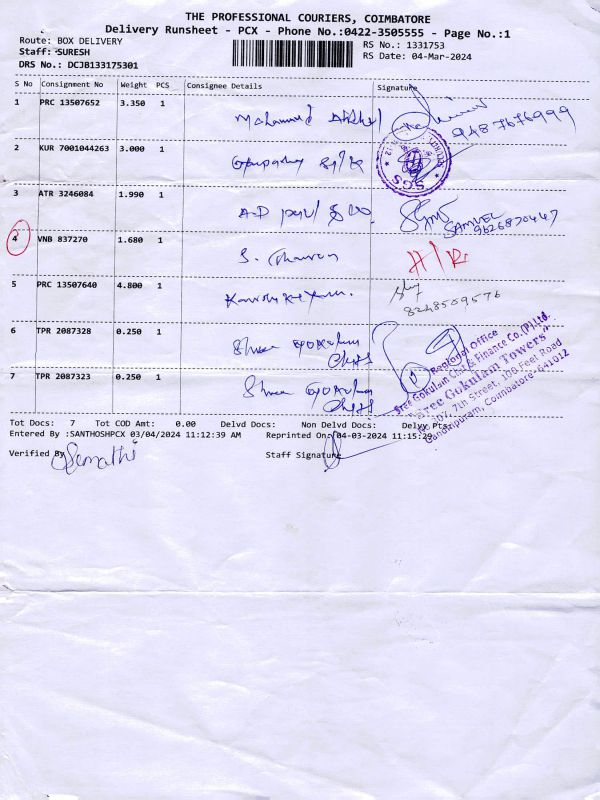 THE PROFESSIONAL COURIERS, COIMBATORE
Delivery Runsheet - PCX - Phone No.:0422-3505555 - Page No.:1
Route: BOX DELIVERY
RS No.: 1331753
Staff: SURESH
RS Date: 04-Mar-2024
DRS No.: DCJB133175301
S No Consignment No Weight PCS Consignee Details Signature
1 PRC 13507652 3.350 1
Mohammed
9487676999
2 KUR 7001044263 3.000 1
SGS
3 ATR 3246084 1.990 1
SAMUEL
9626870447
4 VNB 837270 1.680 1
S.
5 PRC 13507640 4.800 1
8248509576
6 TPR 2087328 0.250 1
Shree Gokulam
Chits
7 TPR 2087323 0.250 1
Shree Gokulam
Chits
Regional Office
Sree Gokulam Chit & Finance Co.(P) Ltd.
"Sree Gokulam Towers"
7th Street, 100 Feet Road
Gandhipuram, Coimbatore-641012
Tot Docs: 7 Tot COD Amt: 0.00 Delvd Docs: Non Delvd Docs: Delyy Pts:
Entered By :SANTHOSHPCX 03/04/2024 11:12:39 AM Reprinted On: 04-03-2024 11:15:29
Verified By
Staff Signature